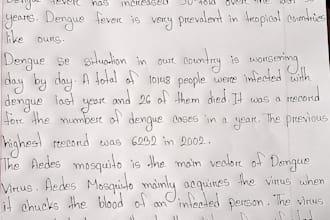 fever has increased 30-fold over the last 50
years. Dengue fever is very prevalent in tropical countries
like ours.
Dengue se situation in our country is worsening
day by day. A total of 10148 people were infected with
dengue last year and 26 of them died. It was a record
for the number of dengue cases in a year. The previous
highest record was 6232 in 2002.
The Aedes mosquito is the main vector of Dengue
Virus. Aedes Mosquito mainly acquires the virus when
it chucks the blood of an infected person. The virus